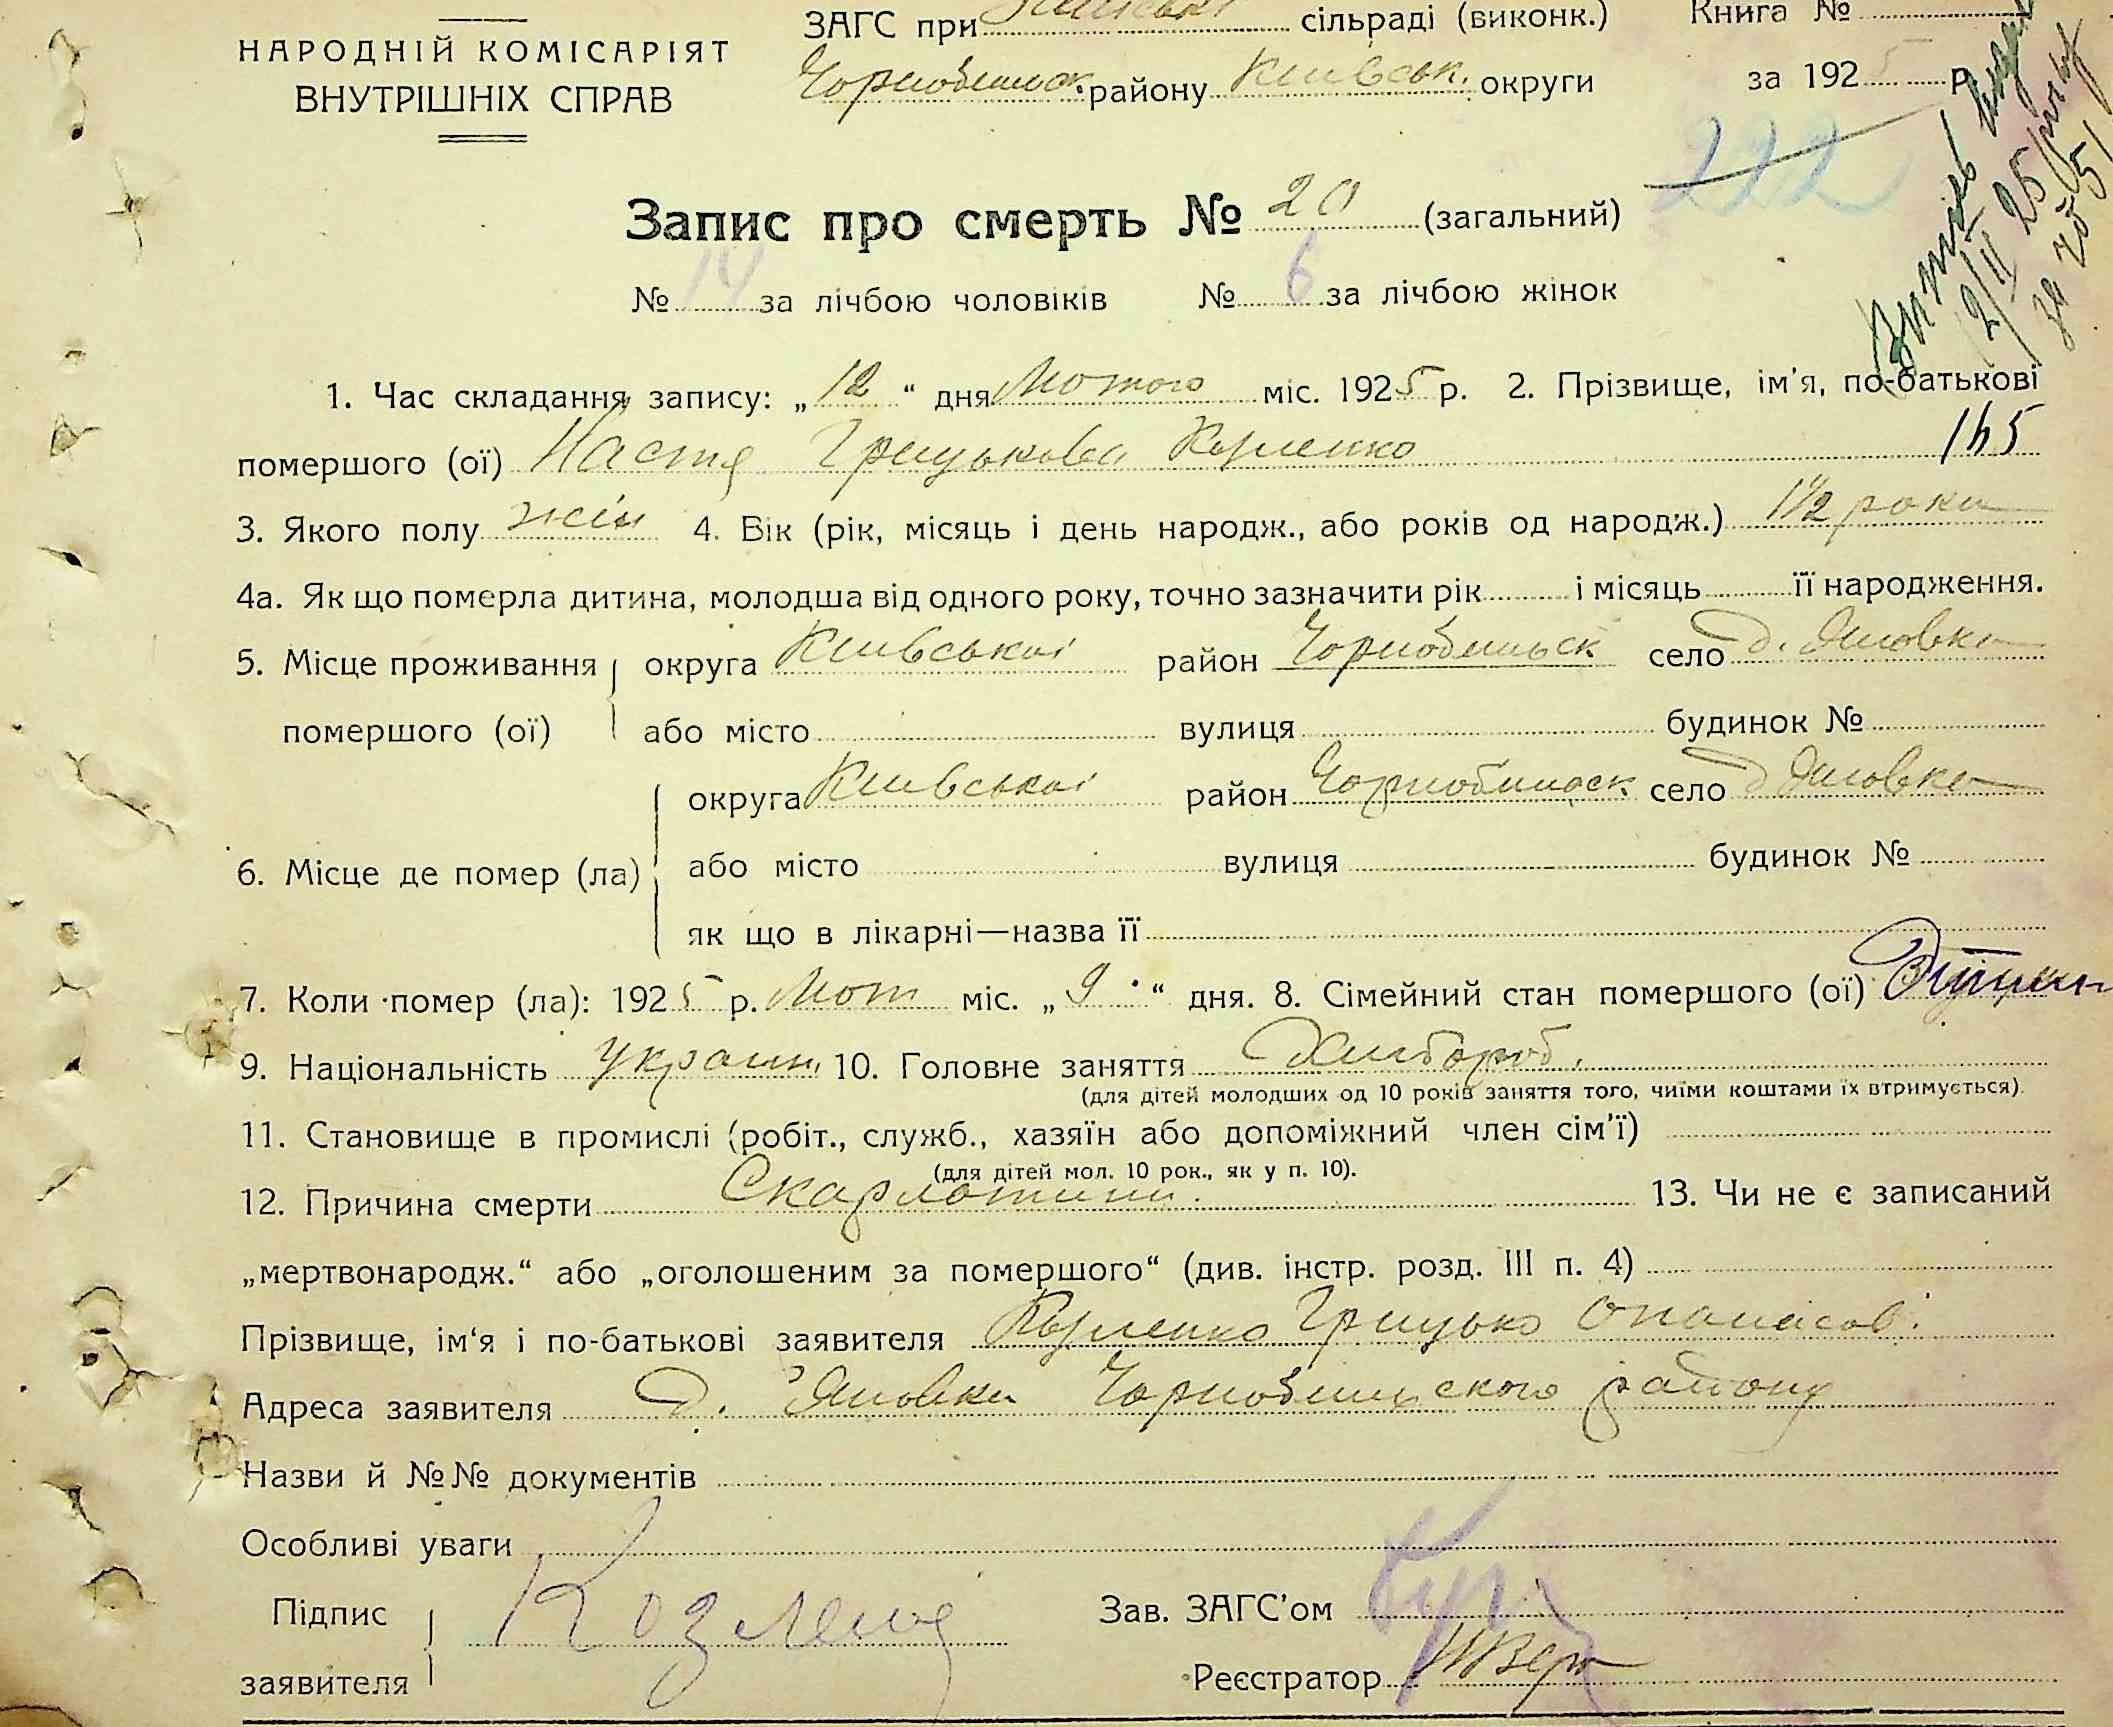 НАРОДНІЙ КОМІСАРІЯТ
ВНУТРІШНІХ СПРАВ
ЗАГС при сільраді (виконк.)
Чорнобильск. району Київськ. округи
Книга №
за 1925 р.
222
Запис про смерть № 20 (загальний)
№ 14 за лічбою чоловіків № 6 за лічбою жінок
1. Час складання запису: „12“ дня Лютого міс. 1925 р. 2. Прізвище, ім'я, по-батькові
помершого (ої) Настя Грицькова Козленко
3. Якого полу жін 4. Вік (рік, місяць і день народж., або років од народж.) 1 1/2 роки
4а. Як що померла дитина, молодша від одного року, точно зазначити рік і місяць її народження.
5. Місце проживання помершого (ої) округа Київської район Чорнобильск село д. Яновка
або місто вулиця будинок №
6. Місце де помер (ла) округа Київської район Чорнобильск село д Яновка
або місто вулиця будинок №
як що в лікарні—назва її
7. Коли помер (ла): 1925 р. Лют міс. „9“ дня. 8. Сімейний стан помершого (ої)
9. Національність україн. 10. Головне заняття Хлібороб.
(для дітей молодших од 10 років заняття того, чиїми коштами їх втримується).
11. Становище в промислі (робіт., служб., хазяїн або допоміжний член сім'ї)
(для дітей мол. 10 рок., як у п. 10).
12. Причина смерти Скарлатини. 13. Чи не є записаний
„мертвонародж.“ або „оголошеним за помершого“ (див. інстр. розд. III п. 4)
Прізвище, ім'я і по-батькові заявителя Козленко Грицько Опанасов.
Адреса заявителя д. Яновка Чорнобильского району
Назви й №№ документів
Особливі уваги
Підпис заявителя
Зав. ЗАГС'ом
Реєстратор